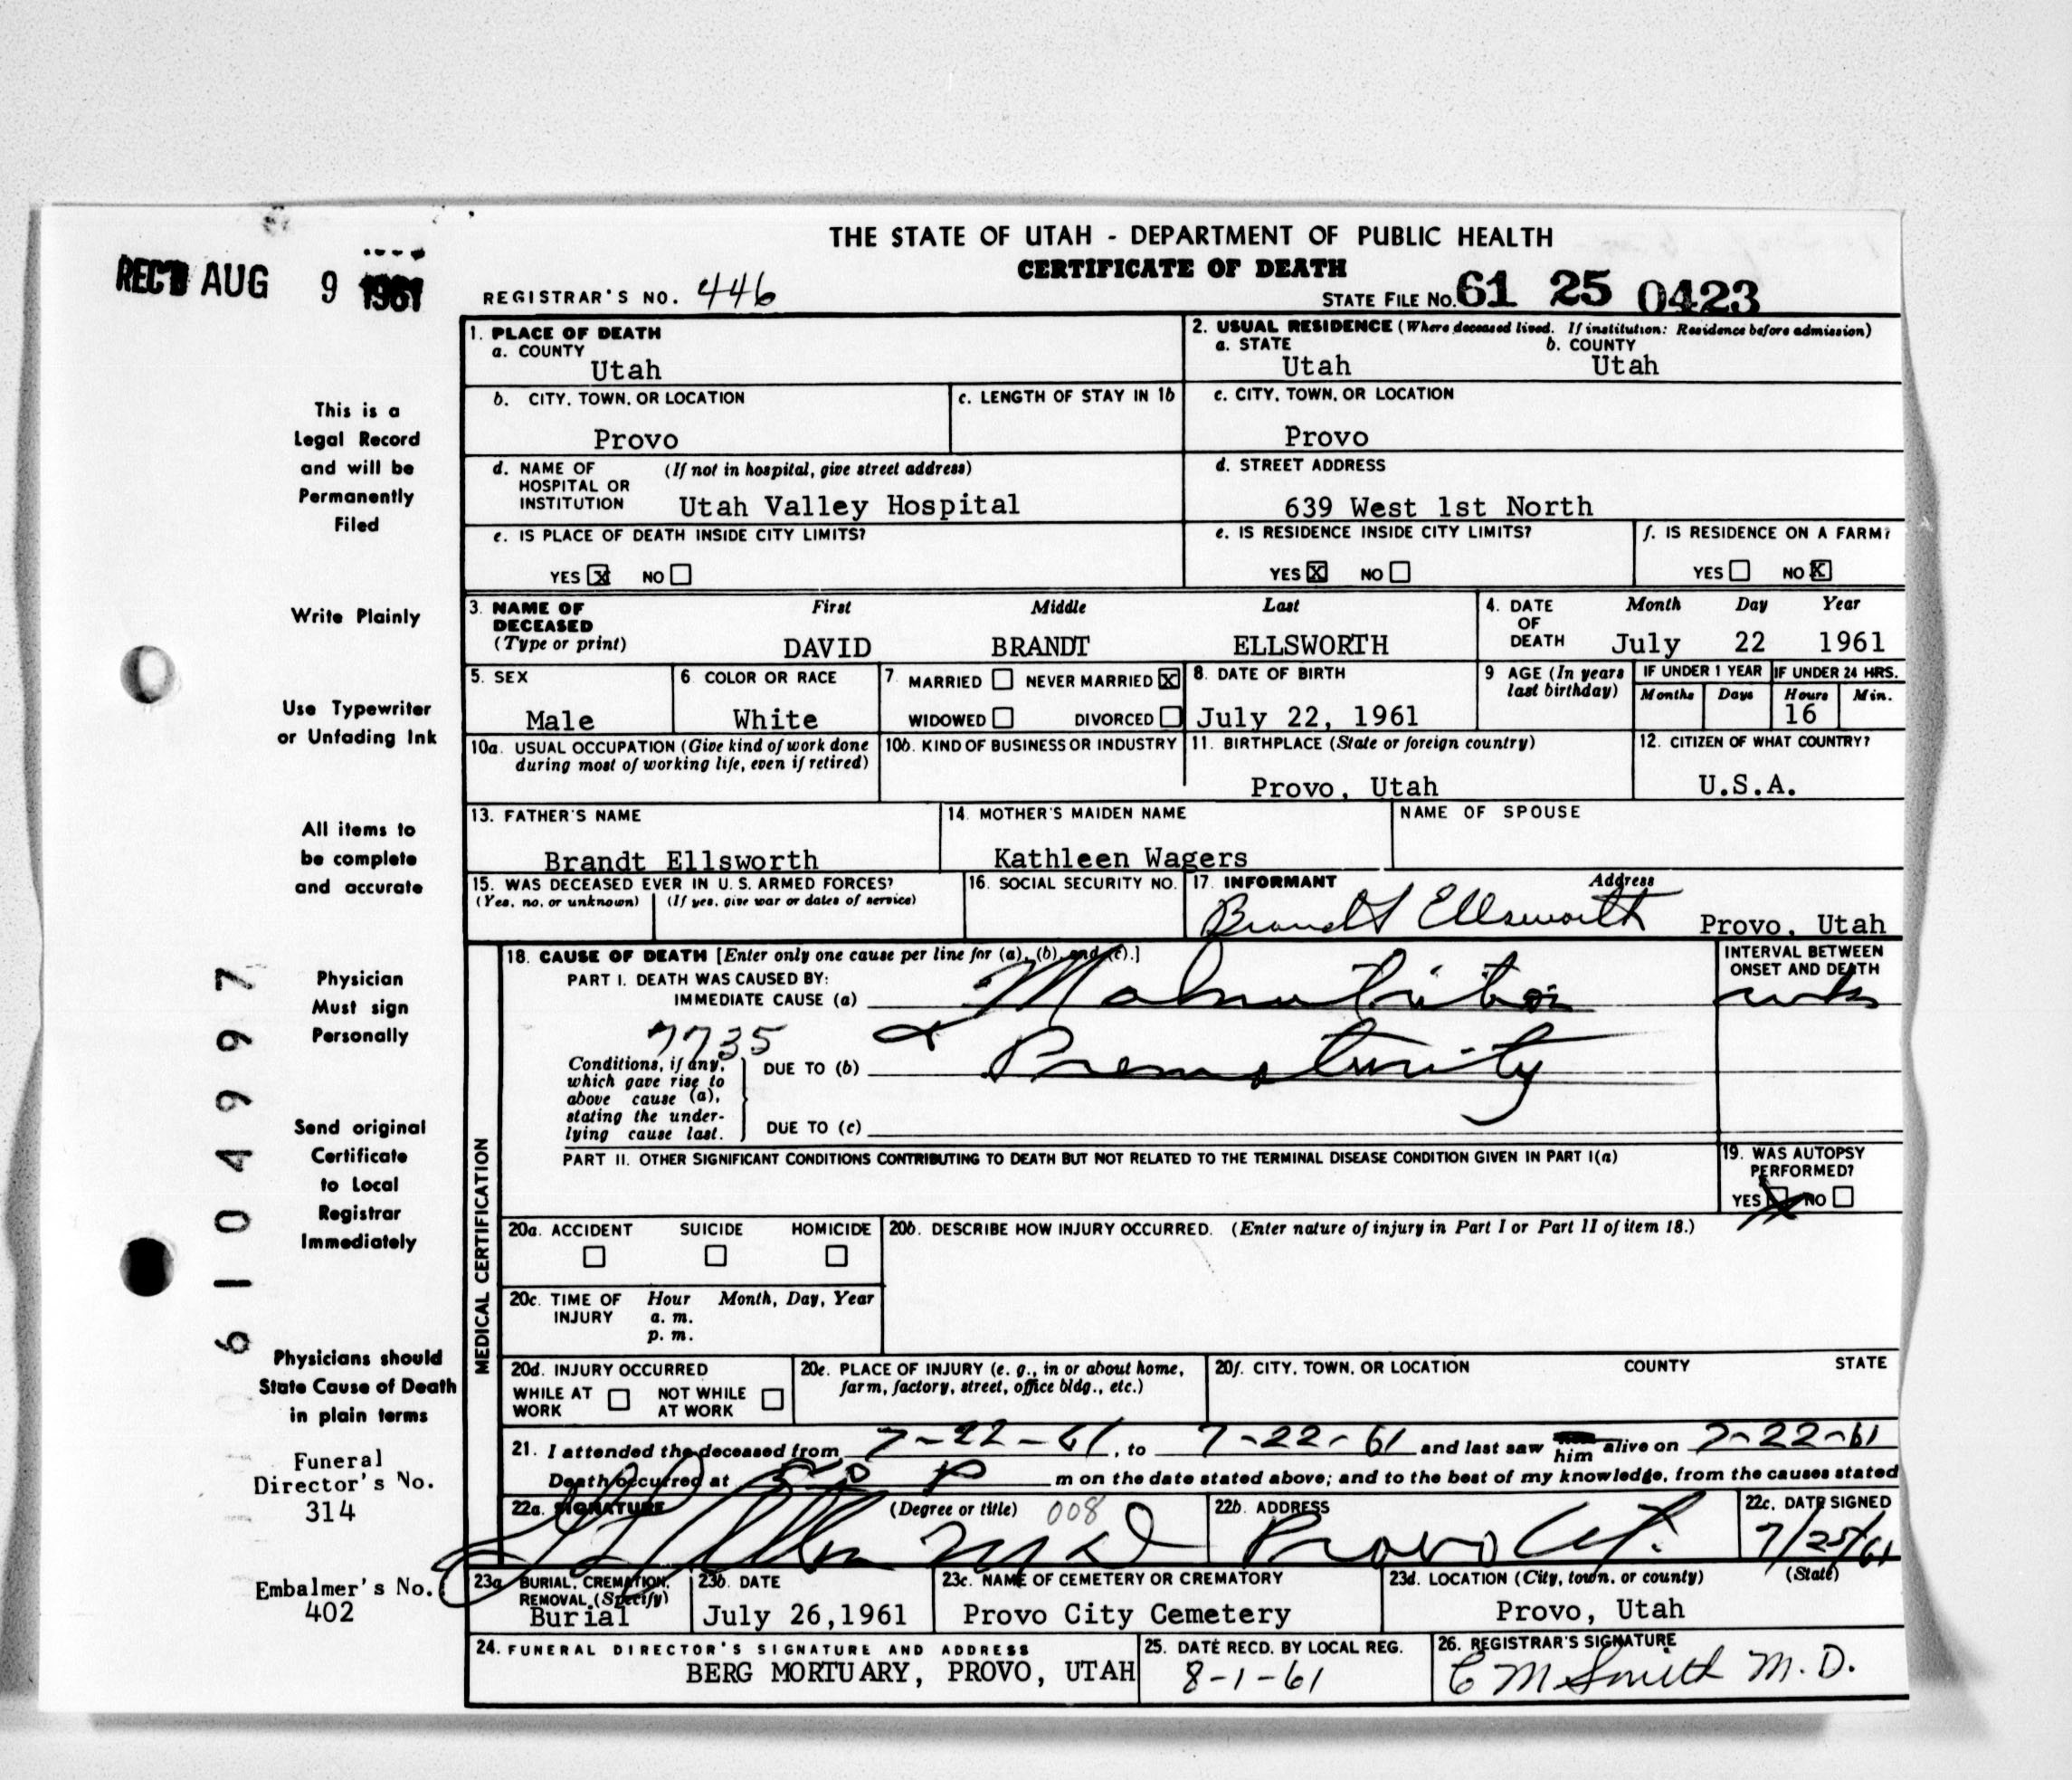 THE STATE OF UTAH - DEPARTMENT OF PUBLIC HEALTH
CERTIFICATE OF DEATH
REC'D AUG 9 1961
REGISTRAR'S NO. 446
STATE FILE NO. 61 25 0423
1. PLACE OF DEATH
a. COUNTY
Utah
2. USUAL RESIDENCE (Where deceased lived. If institution: Residence before admission)
a. STATE b. COUNTY
Utah Utah
b. CITY, TOWN, OR LOCATION
Provo
c. LENGTH OF STAY IN 1b
c. CITY, TOWN, OR LOCATION
Provo
d. NAME OF (If not in hospital, give street address)
HOSPITAL OR
INSTITUTION Utah Valley Hospital
d. STREET ADDRESS
639 West 1st North
e. IS PLACE OF DEATH INSIDE CITY LIMITS?
YES X NO
e. IS RESIDENCE INSIDE CITY LIMITS?
YES X NO
f. IS RESIDENCE ON A FARM?
YES NO X
3. NAME OF First Middle Last
DECEASED
(Type or print) DAVID BRANDT ELLSWORTH
4. DATE Month Day Year
OF
DEATH July 22 1961
5. SEX
Male
6. COLOR OR RACE
White
7. MARRIED NEVER MARRIED X
WIDOWED DIVORCED
8. DATE OF BIRTH
July 22, 1961
9 AGE (In years
last birthday)
IF UNDER 1 YEAR IF UNDER 24 HRS.
Months Days Hours Min.
16
10a. USUAL OCCUPATION (Give kind of work done
during most of working life, even if retired)
10b. KIND OF BUSINESS OR INDUSTRY
11. BIRTHPLACE (State or foreign country)
Provo, Utah
12. CITIZEN OF WHAT COUNTRY?
U.S.A.
13. FATHER'S NAME
Brandt Ellsworth
14. MOTHER'S MAIDEN NAME
Kathleen Wagers
NAME OF SPOUSE
15. WAS DECEASED EVER IN U.S. ARMED FORCES?
(Yes, no, or unknown) (If yes, give war or dates of service)
16. SOCIAL SECURITY NO.
17. INFORMANT Address
Brandt Ellsworth Provo, Utah
MEDICAL CERTIFICATION
18. CAUSE OF DEATH [Enter only one cause per line for (a), (b), and (c).]
PART I. DEATH WAS CAUSED BY:
IMMEDIATE CAUSE (a) Malnutrition
INTERVAL BETWEEN
ONSET AND DEATH
wks
7735
Conditions, if any,
which gave rise to
above cause (a),
stating the under-
lying cause last.
DUE TO (b) Prematurity
DUE TO (c)
PART II. OTHER SIGNIFICANT CONDITIONS CONTRIBUTING TO DEATH BUT NOT RELATED TO THE TERMINAL DISEASE CONDITION GIVEN IN PART I(a)
19. WAS AUTOPSY
PERFORMED?
YES X NO
20a. ACCIDENT SUICIDE HOMICIDE
20b. DESCRIBE HOW INJURY OCCURRED. (Enter nature of injury in Part I or Part II of item 18.)
20c. TIME OF Hour Month, Day, Year
INJURY a. m.
p. m.
20d. INJURY OCCURRED
WHILE AT WORK NOT WHILE AT WORK
20e. PLACE OF INJURY (e. g., in or about home,
farm, factory, street, office bldg., etc.)
20f. CITY, TOWN, OR LOCATION COUNTY STATE
21. I attended the deceased from 7-22-61, to 7-22-61 and last saw him alive on 7-22-61
Death occurred at P m on the date stated above; and to the best of my knowledge, from the causes stated
22a. SIGNATURE (Degree or title) 008
M D
22b. ADDRESS
Provo Ut.
22c. DATE SIGNED
7/25/61
23a BURIAL, CREMATION,
REMOVAL (Specify)
Burial
23b. DATE
July 26,1961
23c. NAME OF CEMETERY OR CREMATORY
Provo City Cemetery
23d. LOCATION (City, town, or county) (State)
Provo, Utah
24. FUNERAL DIRECTOR'S SIGNATURE AND ADDRESS
BERG MORTUARY, PROVO, UTAH
25. DATE RECD. BY LOCAL REG.
8-1-61
26. REGISTRAR'S SIGNATURE
C M Smith M.D.
This is a
Legal Record
and will be
Permanently
Filed
Write Plainly
Use Typewriter
or Unfading Ink
All items to
be complete
and accurate
Physician
Must sign
Personally
Send original
Certificate
to Local
Registrar
Immediately
Physicians should
State Cause of Death
in plain terms
Funeral
Director's No.
314
Embalmer's No.
402
6104997